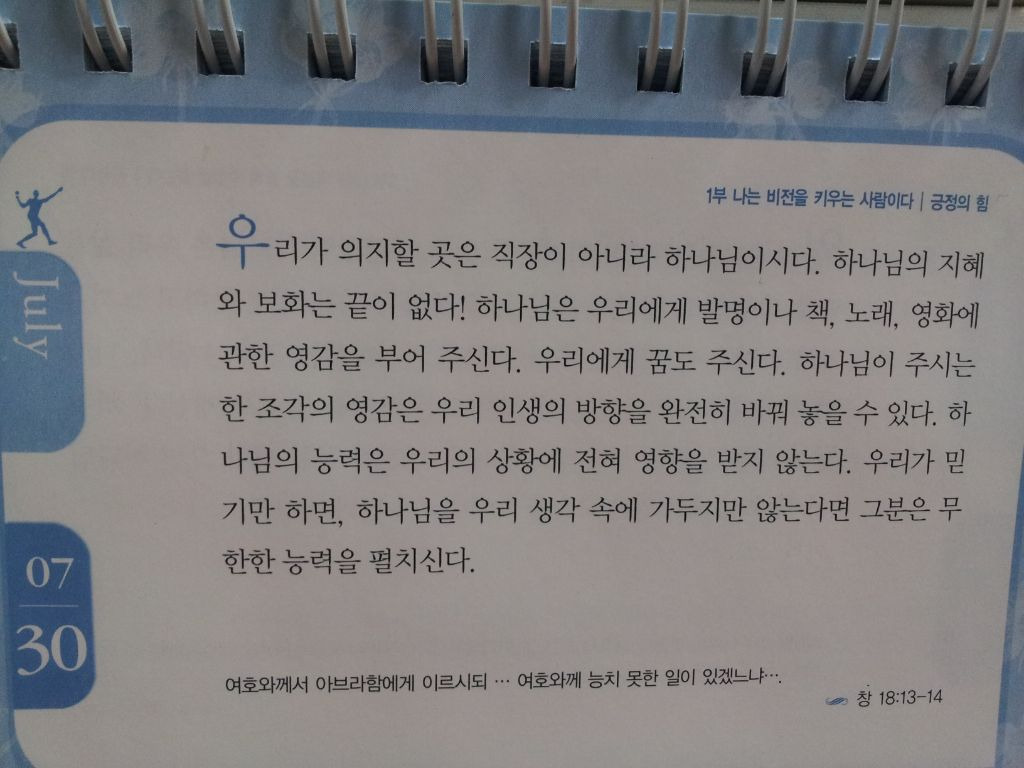 1부 나는 비전을 키우는 사람이다 | 긍정의 힘
July
07
30
우리가 의지할 곳은 직장이 아니라 하나님이시다. 하나님의 지혜
와 보화는 끝이 없다! 하나님은 우리에게 발명이나 책, 노래, 영화에
관한 영감을 부어 주신다. 우리에게 꿈도 주신다. 하나님이 주시는
한 조각의 영감은 우리 인생의 방향을 완전히 바꿔 놓을 수 있다. 하
나님의 능력은 우리의 상황에 전혀 영향을 받지 않는다. 우리가 믿
기만 하면, 하나님을 우리 생각 속에 가두지만 않는다면 그분은 무
한한 능력을 펼치신다.
여호와께서 아브라함에게 이르시되 … 여호와께 능치 못한 일이 있겠느냐….
창 18:13-14